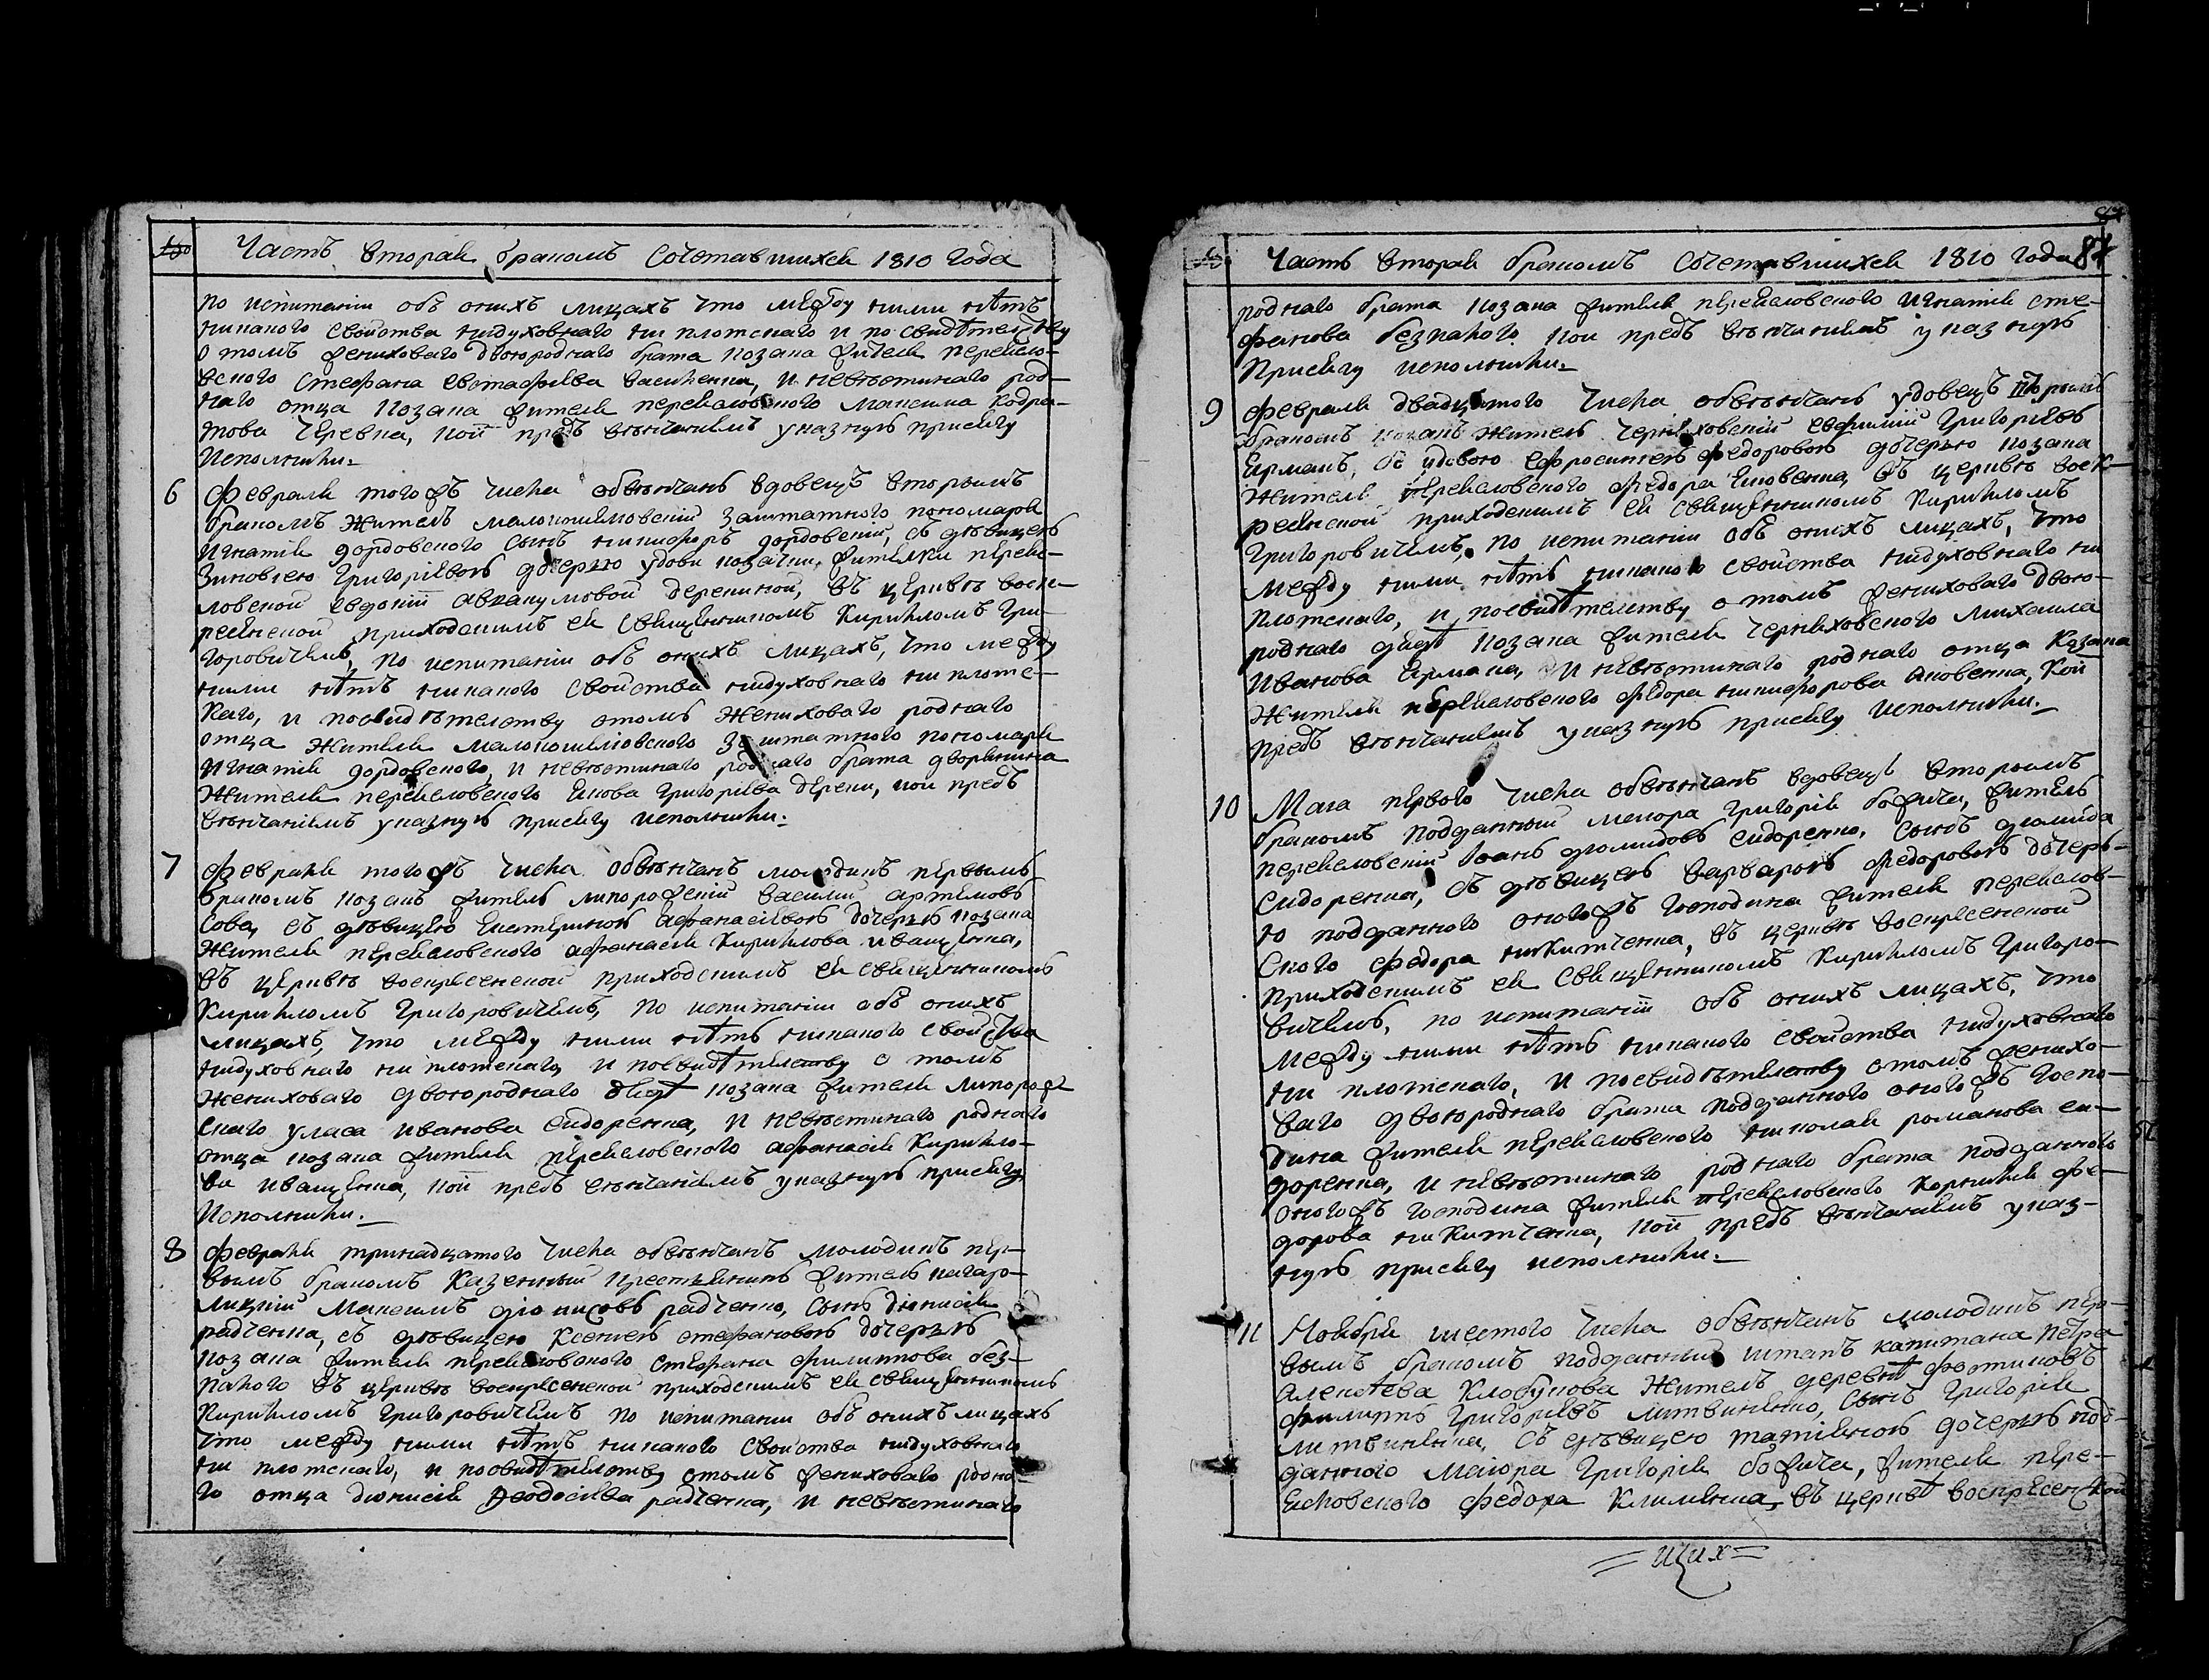 Часть вторая бракомъ сочетавшихся 1810 года
по испитаніи объ онихъ лицахъ что между ними нѣтъ
никакого свойства нидуховнаго ни плотскаго и по свидѣтелству
о томъ жениховаго двоюроднаго брата козака жителя переясло-
вского Стефана Евстафіева Василенка, и невѣстинаго род-
наго отца козака жителя переясловского Максима Кодра-
това Черевка, кои предъ вѣнчаніемъ указную присягу
исполнили.
6
Февраля того жъ числа обвѣнчанъ вдовецъ вторымъ
бракомъ житель малокошеловскій заштатного пономаря
Игнатія дордовского сынъ никифоръ дордовскій, съ дѣвицею
Зиновіею Григоріевою дочерью удови козачки, жителки переяс-
ловской Евдокіи Аввакумовой дерепиной, въ церквѣ воск-
ресенской приходскимъ ея священникомъ Кириломъ Гри-
горовичемъ, по испитаніи объ онихъ лицахъ, что между
ними нѣтъ никакого свойства нидуховнаго ни плотс-
каго, и посвидѣтелству отомъ жениховаго роднаго
отца жителя малокошеловского заштатного пономаря
Игнатія дордовского, и невѣстинаго роднаго брата дворянина
жителя переясловского Якова Григоріева дерепи, кои предъ
вѣнчаніемъ указную присягу исполнили.
7
Февраля того жъ числа обвѣнчанъ молодикъ первымъ
бракомъ козакъ житель липорожскій Василій Артемовъ
Сова, съ дѣвицею Екатериною Афанасіевою дочерью козака
жителя переясловского Афанасія Кирилова Иващенка,
въ церквѣ воскресенской приходскимъ ея священникомъ
Кириломъ Григоровичемъ, по испитаніи объ онихъ
лицахъ, что между ними нѣтъ никакого свойства
нидуховнаго ни плотскаго, и посвидѣтелству о томъ
жениховаго двоюроднаго дядѣ козака жителя липорож-
ского Уласа Иванова Сидоренка, и невѣстинаго роднаго
отца козака жителя переясловского Афанасія Кирило-
ва Иващенка, кои предъ вѣнчаніемъ указную присягу
исполнили.
8
Февраля тринадцатого числа обвѣнчанъ молодикъ пер-
вымъ бракомъ казенный крестянинъ житель
Максимъ Діонисовъ Радченко, сынъ Діонисія
Радченка, съ дѣвицею Ксеніею Стефановою дочерью
козака жителя переясловского Стефана Филиппова без-
палого въ церквѣ воскресенской приходскимъ ея священникомъ
Кириломъ Григоровичемъ по испитаніи объ онихъ лицахъ
что между ними нѣтъ никакого свойства нидуховнаго
ни плотскаго, и посвидѣтелству отомъ жениховаго родна-
го отца Діонисія Феодосіева Радченка, и невѣстинаго
Часть вторая бракомъ сочетавшихся 1810 года 87
роднаго брата козака жителя переясловского Игнатія Сте-
фанова безпалого. кои предъ вѣнчаніемъ указную
присягу исполнили.
9
Февраля двадцятого числа обвѣнчанъ удовецъ вторымъ
бракомъ козакъ житель черняховскій Евфимій Григоріевъ
Ярмакъ, съ удовою Ефросиніею Федоровою дочерью козака
жителя переясловского Федора Яковенка, въ церквѣ воск-
ресенской приходскимъ ея священникомъ Кириломъ
Григоровичемъ, по испитаніи объ онихъ лицахъ, что
между ними нѣтъ никакого свойства нидуховнаго ни
плотскаго, и посвидѣтелству о томъ жениховаго двою-
роднаго дядѣ козака жителя черняховского Михаила
Иванова Ярмака, и невѣстинаго роднаго отца козака
жителя переясловского Федора Никифорова Яковенка, кои
предъ вѣнчаніемъ указную присягу исполнили.
10
Маія первого числа обвѣнчанъ вдовецъ вторымъ
бракомъ подданный маіора Григорія божича, житель
переясловскій Іоанъ діомидовъ Сидоренко, сынъ діомида
Сидоренка, съ дѣвицею Варварою Федоровою дочерь-
ю подданного оного жъ господина жителя переяслов-
ского Федора Никитченка, въ церквѣ воскресенской
приходскимъ ея священникомъ Кириломъ Григоро-
вичемъ, по испитаніи объ онихъ лицахъ, что
между ними нѣтъ никакого свойства нидуховнаго
ни плотскаго, и посвидѣтелству отомъ женихо-
ваго двоюроднаго брата подданного оного жъ госпо-
дина жителя переясловского Николая Романова Си-
доренка, и невѣстинаго роднаго брата подданного
оного жъ господина жителя переясловского Корнилія Фе-
дорова Никитченка, кои предъ вѣнчаніемъ указ-
ную присягу исполнили.
11
Ноября шестого числа обвѣнчанъ молодикъ пер-
вымъ бракомъ подданный штапъ капитана Петра
Алексѣева Клобукова житель деревнѣ Фастиковъ
Филиппъ Григоріевъ Литвиненко, сынъ Григорія
Литвиненка, съ дѣвицею Татіяною дочерью под-
данного Маіора Григорія божича, жителя пере-
ясловского Федора Клименка, въ церквѣ воскресенской